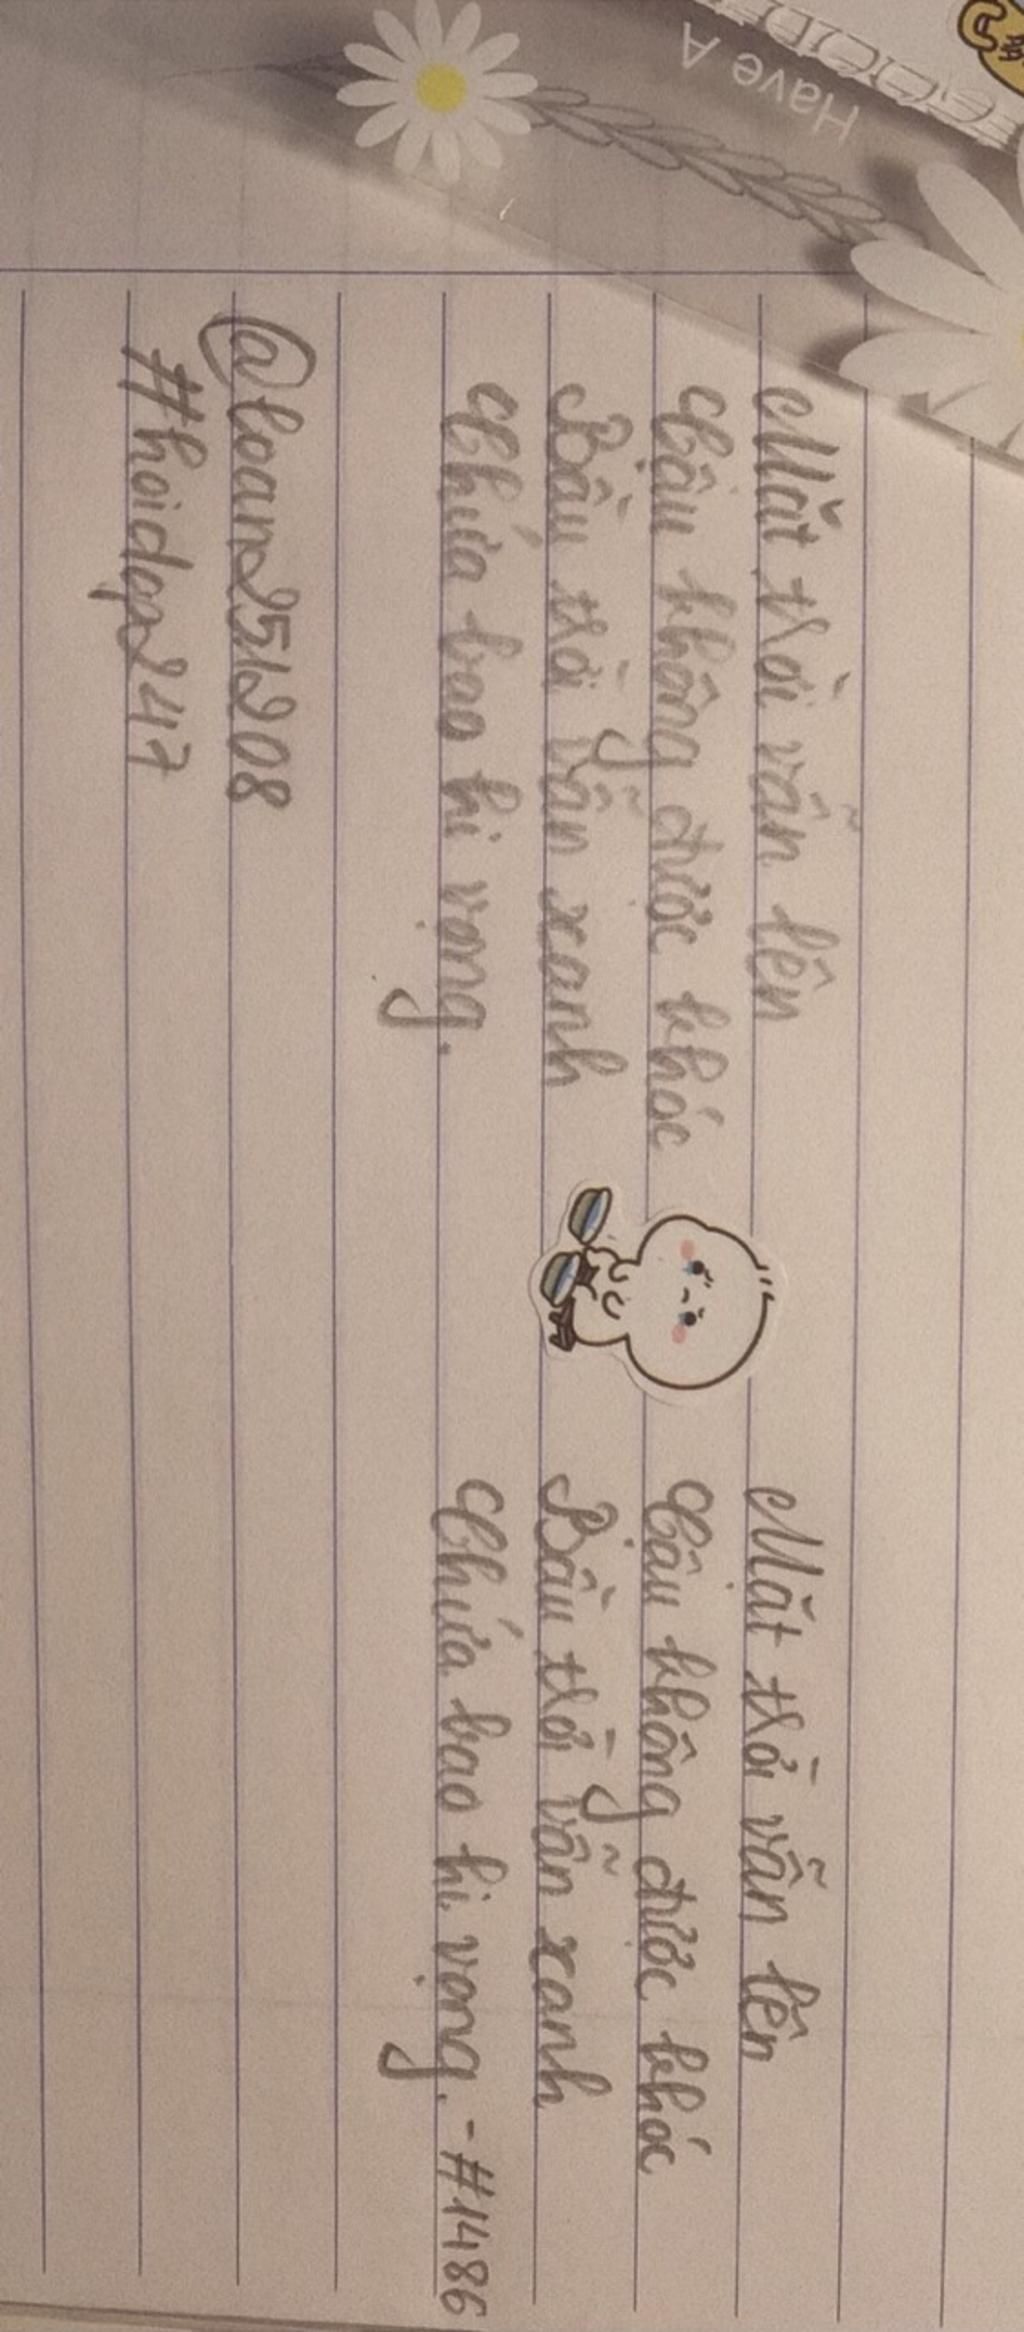 Have A
Mặt trời vẫn lên
Cậu không được khóc
Bầu trời vẫn xanh
Chứa bao hi vọng.
Mặt trời vẫn lên
Cậu không được khóc
Bầu trời vẫn xanh
Chứa bao hi vọng. - #1486
@loan251208
#hoidap247